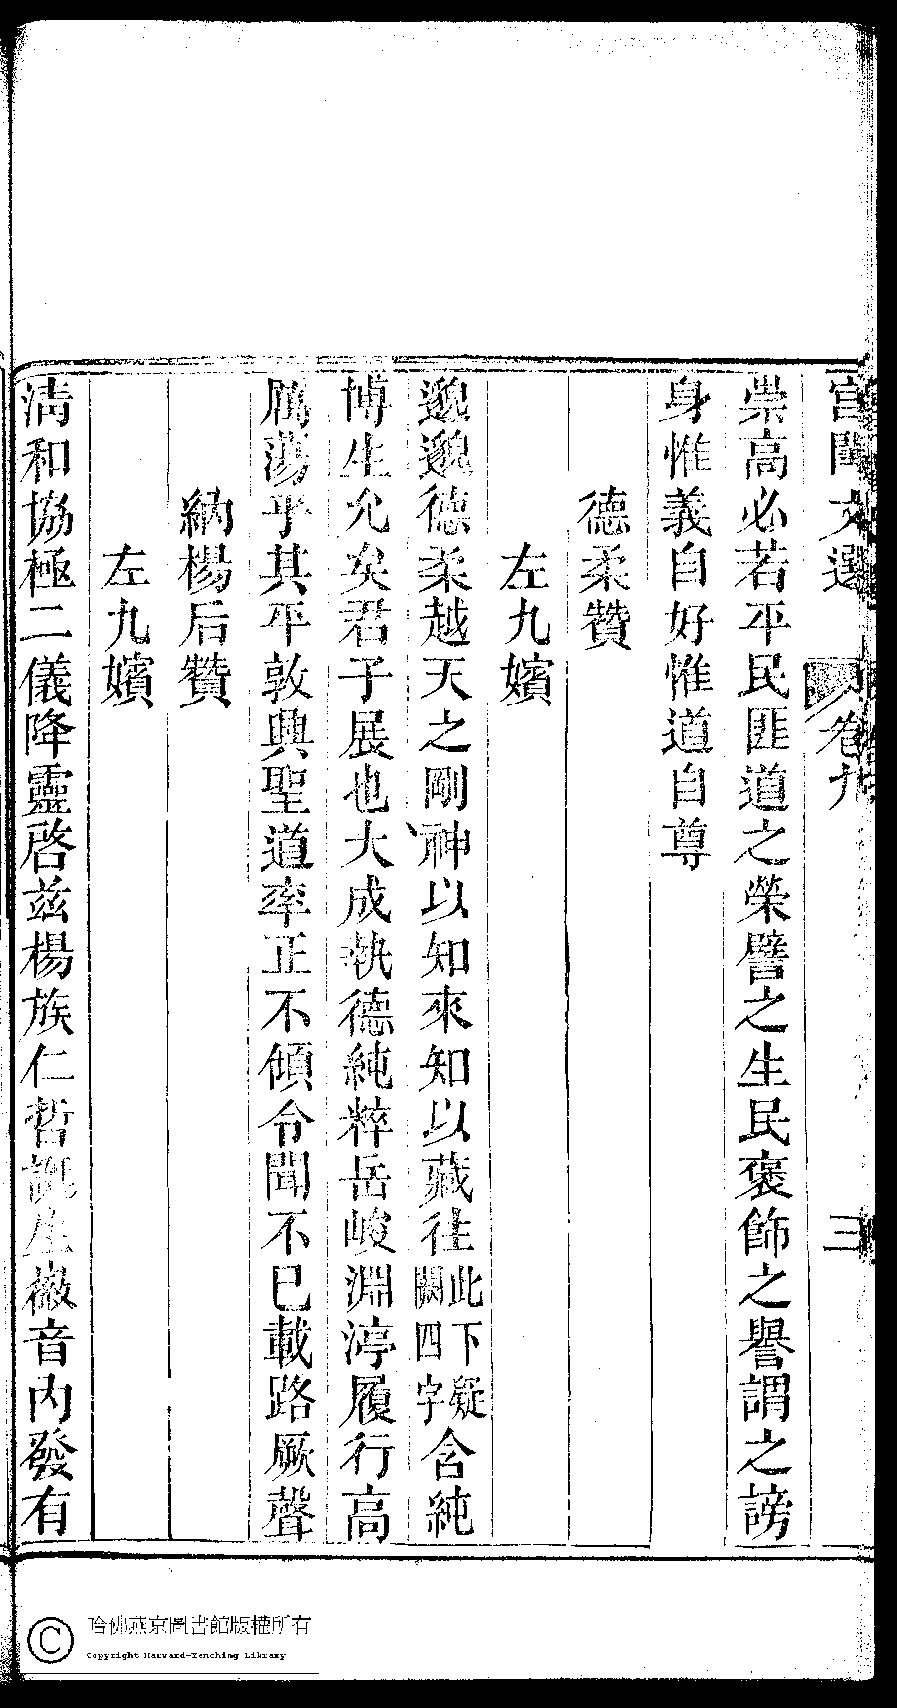 宮閨文選 卷九 三
崇高必若平民匪道之榮譬之生民褒飾之譽謂之謗
身惟義自好惟道自尊
德柔贊
左九嬪
邈邈德柔越天之剛神以知來知以藏往此下疑闕四字含純
博生允矣君子展也大成執德純粹岳峻淵渟履行高
厲蕩乎其平敦興聖道率正不傾令聞不已載路厥聲
納楊后贊
左九嬪
清和協極二儀降靈啓茲楊族仁哲誕生徽音內發有
哈佛燕京圖書館版權所有
Copyright Harvard-Yenching Library